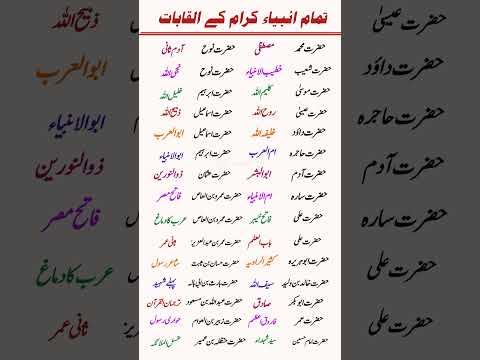 تمام انبیاء کرام کے القابات
حضرت محمد مصطفیٰ حضرت نوح آدم ثانی
حضرت شعیب خطیب الانبیاء حضرت نوح نجی اللہ
حضرت موسیٰ کلیم اللہ حضرت ابرہیم خلیل اللہ
حضرت عیسیٰ روح اللہ حضرت اسماعیل ذبیح اللہ
حضرت داؤد خلیفہ اللہ حضرت اسماعیل ابوالعرب
حضرت حاجرہ ام العرب حضرت ابرہیم ابوالانبیاء
حضرت آدم ابوالبشر حضرت عثمان ذوالنورین
حضرت سارہ ام الانبیاء حضرت عمرو بن العاص فاتح مصر
حضرت علی فاتح خیبر حضرت عمرو بن العاص عرب کا دماغ
حضرت علی باب العلم حضرت عمر بن عبدالعزیز ثانی عمر
حضرت ابوہریرہ کثیر الراویہ حضرت حسان بن ثابت شاعر رسول
حضرت خالد بن ولید سیف اللہ حضرت حارث بن ابی ہالہ پہلے شہید
حضرت ابوبکر صادق حضرت عبداللہ بن مسعود ترجمان القرآن
حضرت عمر فاروق اعظم حضرت زبیر بن العوام حواری رسول
حضرت امام حسین سید شہداء حضرت حنظلہ بن عمیر غسل الملائکہ
ذبیح اللہ
ابوالعرب
ابوالانبیاء
ذوالنورین
فاتح مصر
عرب کا دماغ
ثانی عمر
حضرت عیسیٰ
حضرت داؤد
حضرت حاجرہ
حضرت آدم
حضرت سارہ
حضرت علی
حضرت علی